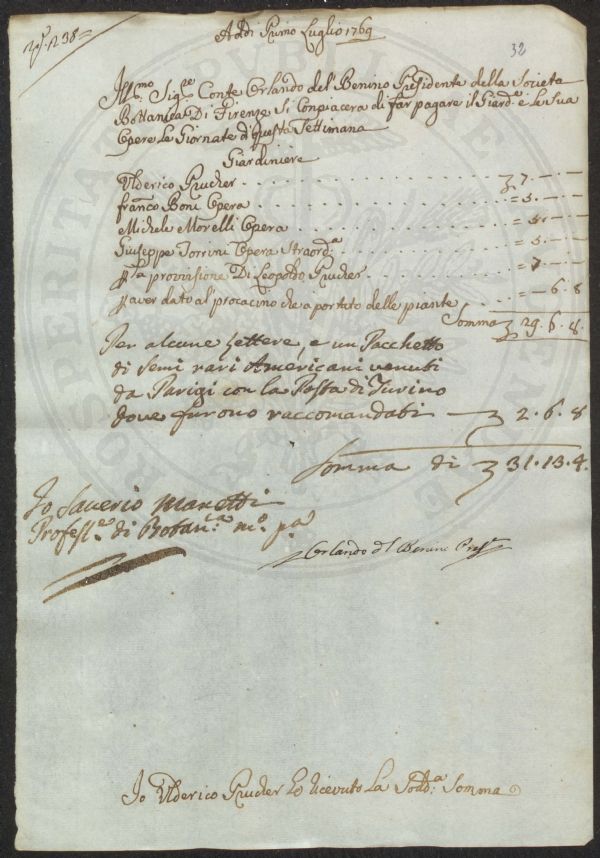 N.º 1238=
Addi Primo Luglio 1769
32
Ill:mo Sig:re Conte Orlando del Benino Presidente della Societa
Bottanica Di Firenze Si Conpiacera di far pagare il Giard:e e le Sua
Opere Le Giornate d'questa Settimana
Giardiniere
Ulderico Prucher - - - 7 - -
Franco Boni Opera - - - = 5 - -
Michele Morelli Opera - - - = 5 - -
Giuseppe Torrini Opera Straord:a - - - = 5 - -
p la provisione Di Leopoldo Prucher - - - = 7 - -
p aver dato al procacino che a portato delle piante - - - = - 6. 8
Somma 29. 6. 8.
Per alcune Lettere, e un Pacchetto
di Semi rari Americani venuti
da Parigi con la Posta di Turino
dove furono raccomandati — 2. 6. 8
Somma di 31. 13. 4.
Io Saverio Manetti
Profess:re di Botan:ca m:o p:a
Orlando del Benino Pres:te
Io Ulderico Prucher Ho ricevuto La Sodd:a Somma